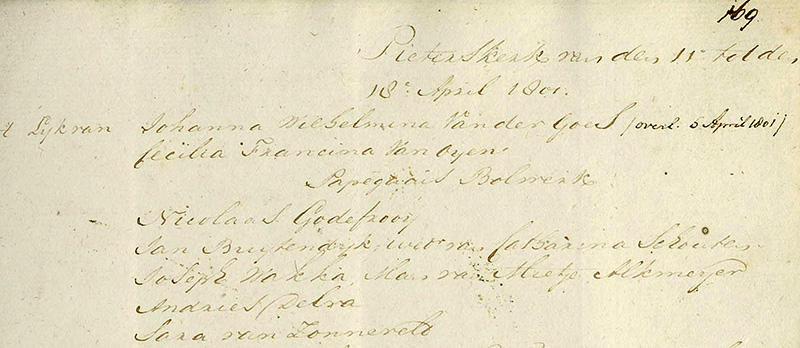 169
Pieterskerk van den 11e tot den
18e April 1801.
't Lyk van Johanna Wilhelmina Vander Goes [overl. 5 April 1801]
Cecilia Francina Van Oyen
Papegaais Bolwerk
Nicolaas Godefrooy
Jan Buytendyk, wedr van Catharina Schouten
Joseph Wakka, Man van Mietje Alkmeyer
Andries Delra
Sara van Zonneveld